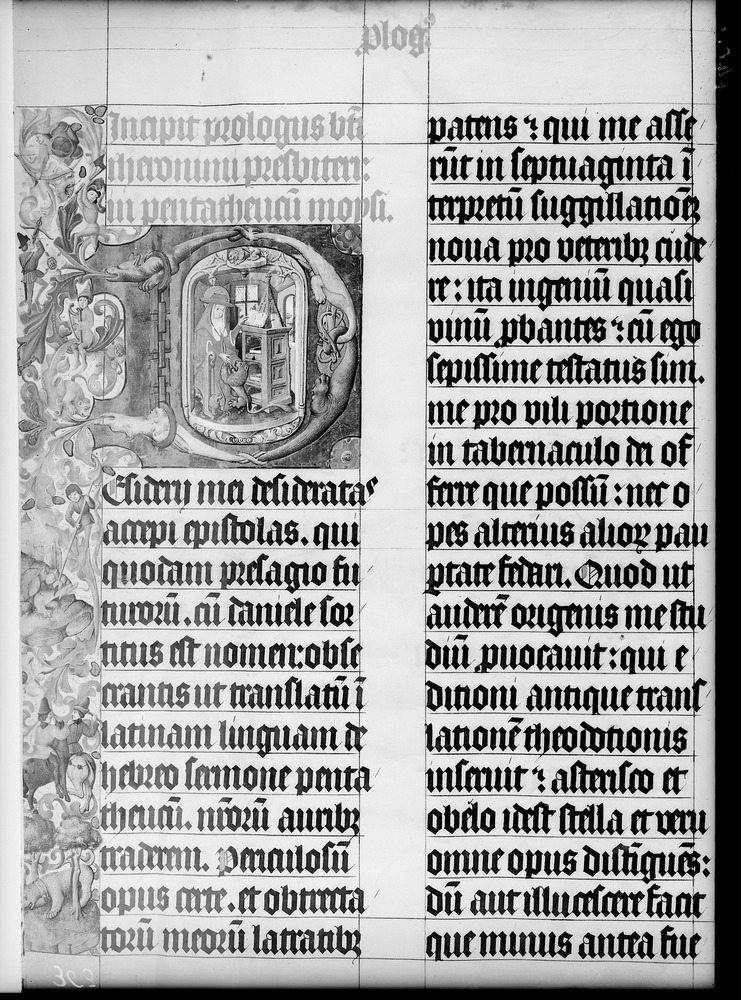 plogꝰ
Incipit prologus bti
iheronimi presbiteri:
in pentatheucū moysi.
Esiderij mei desideratas
accepi epistolas. qui
quodam presagio fu
turorū. cū daniele sor
titus est nomen: obse
crantis ut translatū ī
latinam linguam de
hebreo sermone penta
theucū. nr̄orū auribꝫ
traderem. Periculosū
opus certe. et obtrecta
torū meorū latratibꝫ
patens: qui me asse
rūt in septuaginta ī
terpretū suggillationēꝫ
noua pro veteribꝫ cude
re: ita ingeniū quasi
vinū ꝓbantes: cū ego
sepissime testatus sim.
me pro vili portione
in tabernaculo dei of
ferre que possū: nec o
pes alterius alioꝝ pau
ptate fedari. Quod ut
auderē origenis me stu
diū ꝓuocauit: qui e
ditioni antique trans
lationē theodotionis
inseruit: asterisco et
obelo idest stella et veru
omne opus distīguēs:
dū aut illucescere facit
que minus antea fue